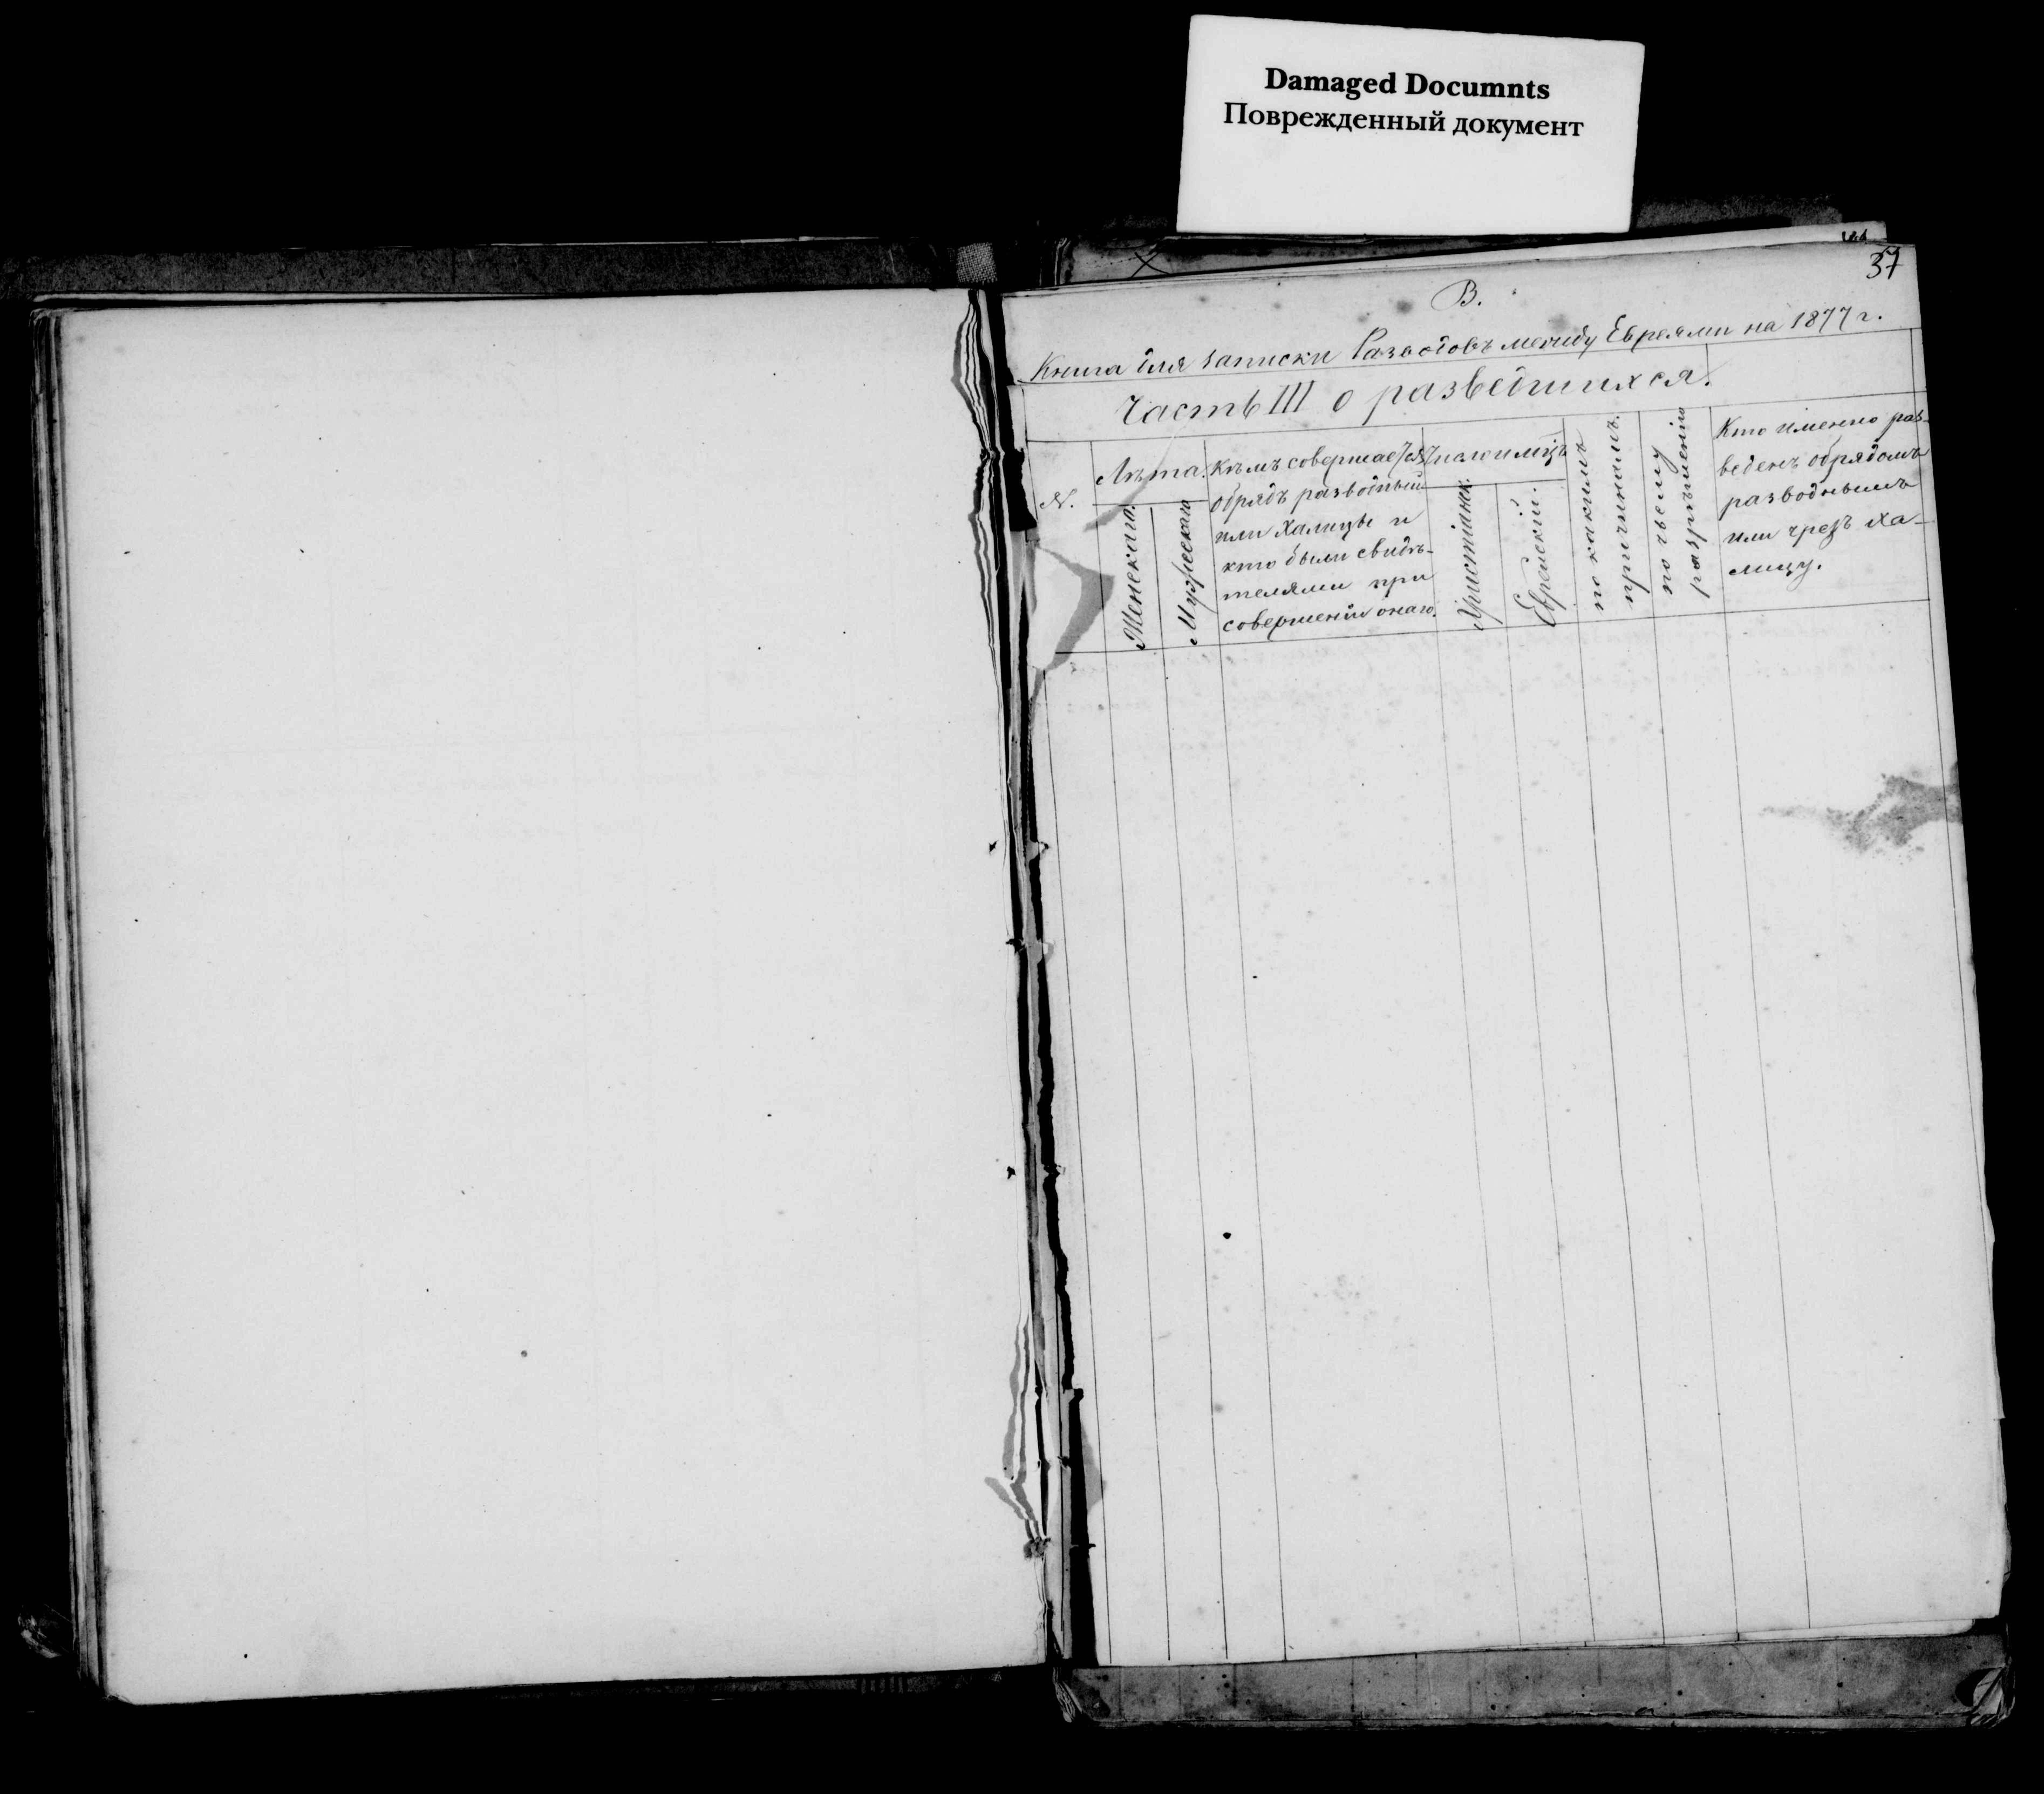 Damaged Documnts
Поврежденный документ
37
В.
Книга для записки Разводовъ между Евреями на 1877 г.
Часть III о разведшихся.
№.
Лѣта.
Женскаго.
Мужескаго
Кѣмъ совершается
обрядъ разводный
или Халицы и
кто были свидѣ-
телями при
совершеніи онаго.
Число и мѣсяцъ
Христіанск.
Еврейскій.
по какимъ
причинамъ.
по чьему
разрѣшенію
Кто именно раз-
веденъ обрядомъ
разводнымъ
или чрезъ ха-
лицу.